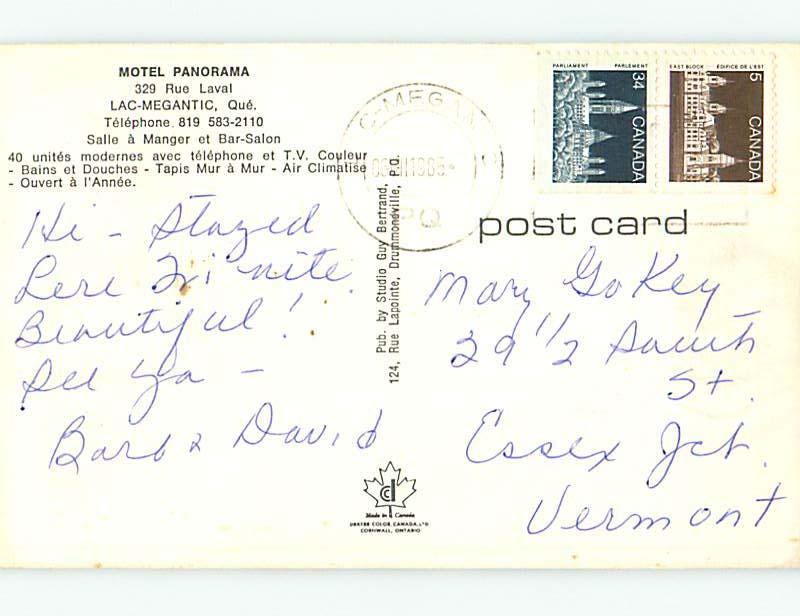 MOTEL PANORAMA
329 Rue Laval
LAC-MEGANTIC, Qué.
Téléphone 819 583-2110
Salle à Manger et Bar-Salon
40 unités modernes avec téléphone et T.V. Couleur
- Bains et Douches - Tapis Mur à Mur - Air Climatisé
- Ouvert à l'Année.
Hi - Stayed
here Fri nite.
Beautiful!
See Ya -
Barb & David
Pub. by Studio Guy Bertrand,
124, Rue Lapointe, Drummondville, P.Q.
C-MEGAN
1985
PQ
PARLIAMENT PARLEMENT
34
CANADA
EAST BLOCK ÉDIFICE DE L'EST
5
CANADA
post card
Mary GoKey
29 1/2 South
St.
Essex Jct.
Vermont
Made in Canada
DEXTER COLOR CANADA, LTD
CORNWALL, ONTARIO